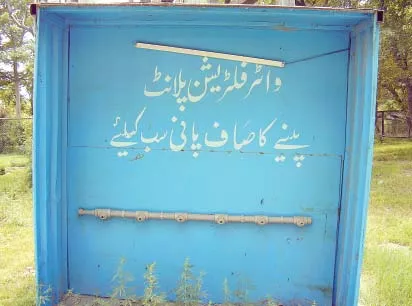 واٹر فلٹریشن پلانٹ
پینے کا صاف پانی سب کیلئے